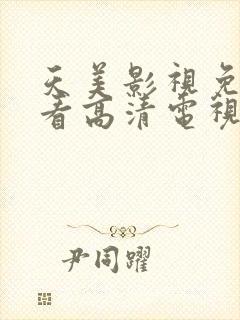 天美影視免
看高清電視
尹同躍